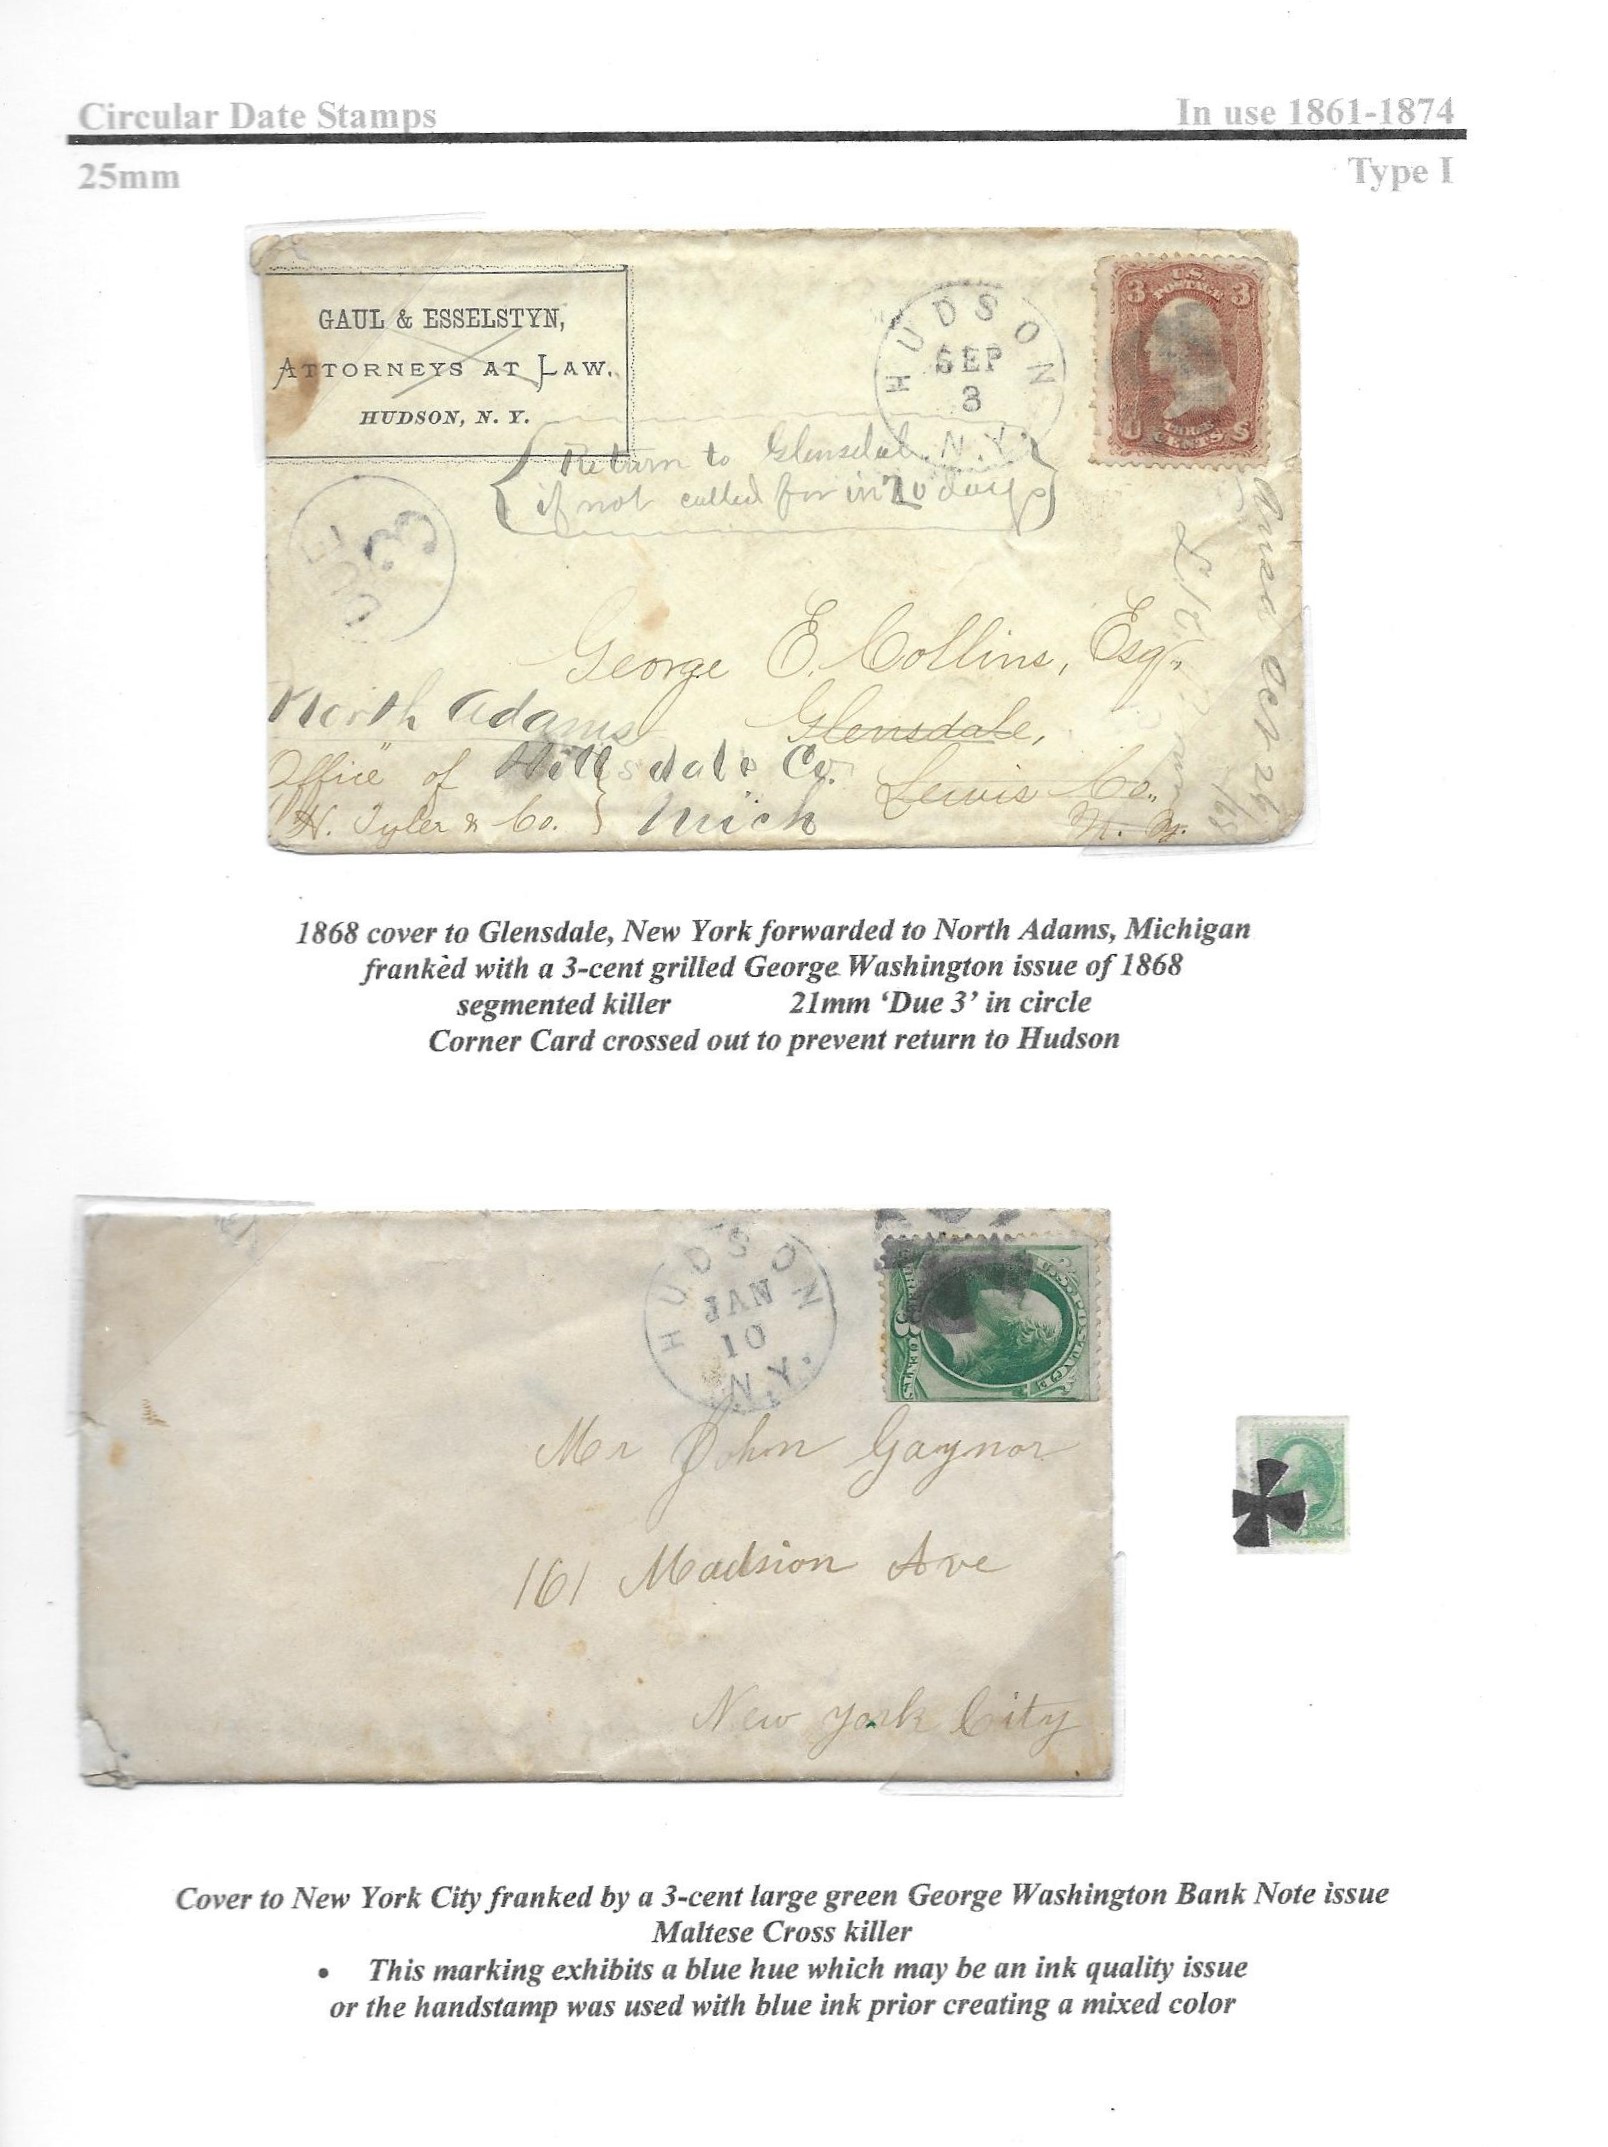 Circular Date Stamps
In use 1861-1874
25mm
Type I
GAUL & ESSELSTYN,
ATTORNEYS AT LAW,
HUDSON, N. Y.
HUDSON
SEP
3
N.Y.
U.S.
POSTAGE
3 3
THREE
CENTS
Return to Glensdale
if not called for in 20 days
DUE
3
George E. Collins, Esq.
Glensdale,
Lewis Co.,
N. Y.
North Adams
Hillsdale Co.
Mich
Office of
H. Tyler & Co.
Oct 26
/68
1868 cover to Glensdale, New York forwarded to North Adams, Michigan
franked with a 3-cent grilled George Washington issue of 1868
segmented killer 21mm ‘Due 3’ in circle
Corner Card crossed out to prevent return to Hudson
HUDSON
JAN
10
N.Y.
3 CENTS
Mr John Gaynor
161 Madsion Ave
New York City
Cover to New York City franked by a 3-cent large green George Washington Bank Note issue
Maltese Cross killer
• This marking exhibits a blue hue which may be an ink quality issue
or the handstamp was used with blue ink prior creating a mixed color